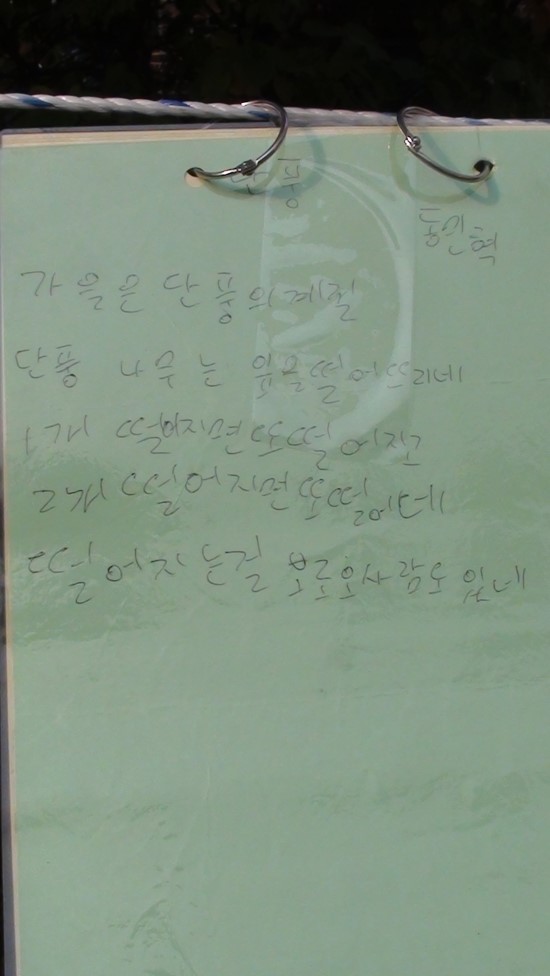 단풍
동민혁
가을은 단풍의계절
단풍 나무는 잎을떨어뜨리네
1개 떨어지면또떨어지고
2개 떨어지면또떨어네
떨어지는걸 보로오사람도 있네